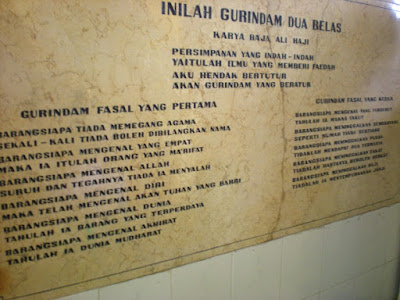 INILAH GURINDAM DUA BELAS
KARYA RAJA ALI HAJI
PERSIMPANAN YANG INDAH - INDAH
YAITULAH ILMU YANG MEMBERI FAEDAH
AKU HENDAK BERTUTUR
AKAN GURINDAM YANG BERATUR
GURINDAM FASAL YANG PERTAMA
BARANGSIAPA TIADA MEMEGANG AGAMA
SEKALI - KALI TIADA BOLEH DIBILANGKAN NAMA
BARANGSIAPA MENGENAL YANG EMPAT
MAKA IA ITULAH ORANG YANG MA'RIFAT
BARANGSIAPA MENGENAL ALLAH
SURUH DAN TEGAHNYA TIADA IA MENYALAH
BARANGSIAPA MENGENAL DIRI
MAKA TELAH MENGENAL AKAN TUHAN YANG BAHRI
BARANGSIAPA MENGENAL DUNIA
TAHULAH IA BARANG YANG TERPERDAYA
BARANGSIAPA MENGENAL AKHIRAT
TAHULAH IA DUNIA MUDHARAT
GURINDAM FASAL YANG KEDUA
BARANGSIAPA MENGENAL YANG
TAHULAH IA MAKNA TAKUT
BARANGSIAPA MENINGGALKAN
SEPERTI RUMAH TIADA
BARANGSIAPA MENINGGALKAN
TIDAKLAH
BARANGSIAPA MENINGGALKAN
TIADALAH
BARANGSIAPA MENINGGALKAN
TIADALAH IA